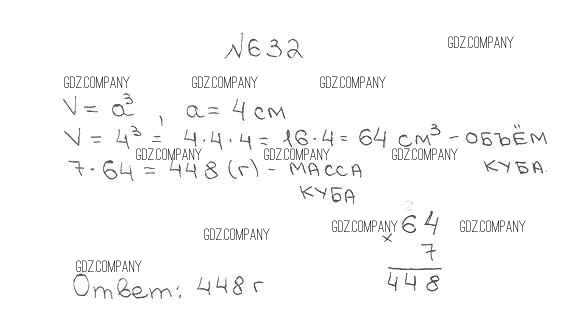 №632
GDZ.COMPANY
GDZ.COMPANY GDZ.COMPANY GDZ.COMPANY
V = a³, a = 4 см
V = 4³ = 4·4·4 = 16·4 = 64 см³ - ОБЪЁМ
КУБА.
GDZ.COMPANY GDZ.COMPANY GDZ.COMPANY
7·64 = 448 (г) - МАССА
КУБА
GDZ.COMPANY GDZ.COMPANY GDZ.COMPANY
× 64
7
448
GDZ.COMPANY
Ответ: 448 г